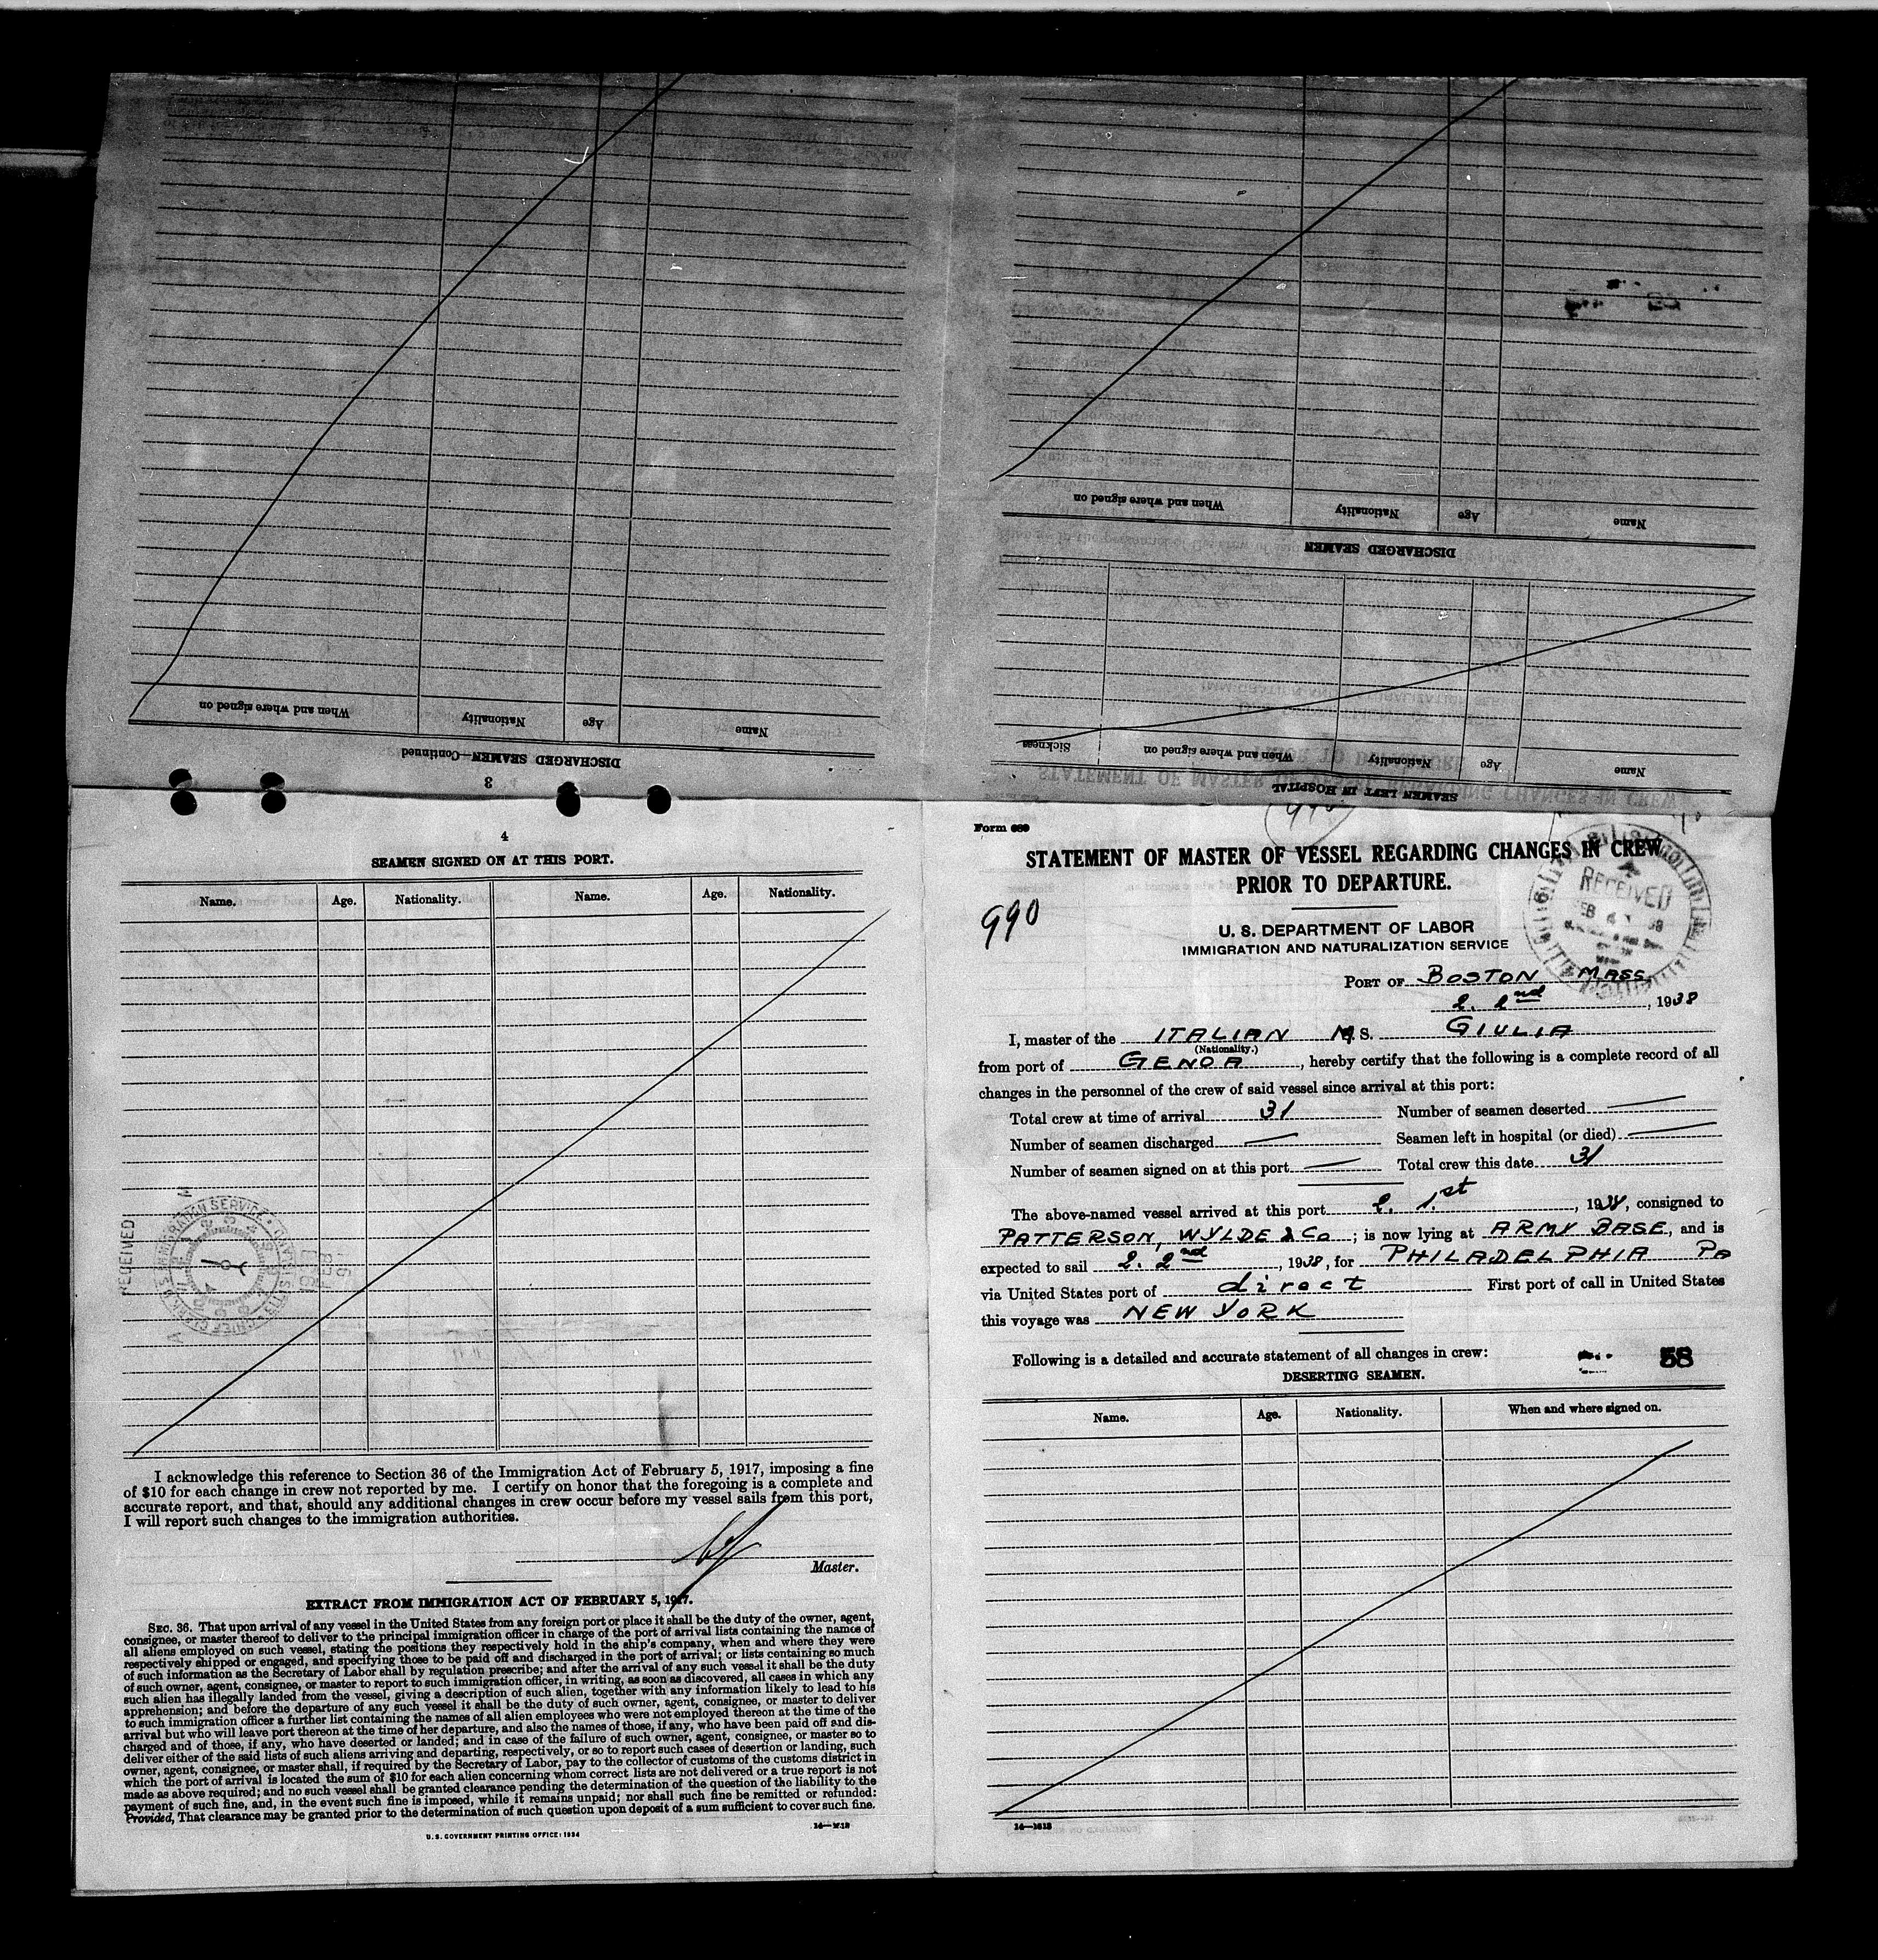 When and where signed on
Nationality
Age
Name
DISCHARGED SEAMEN—Continued
3
When and where signed on
Nationality
Age
Name
DISCHARGED SEAMEN
Sickness
When and where signed on
Nationality
Age
Name
SEAMEN LEFT IN HOSPITAL
4
SEAMEN SIGNED ON AT THIS PORT.
Name. Age. Nationality. Name. Age. Nationality.
RECEIVED
I acknowledge this reference to Section 36 of the Immigration Act of February 5, 1917, imposing a fine
of $10 for each change in crew not reported by me. I certify on honor that the foregoing is a complete and
accurate report, and that, should any additional changes in crew occur before my vessel sails from this port,
I will report such changes to the immigration authorities.
Master.
EXTRACT FROM IMMIGRATION ACT OF FEBRUARY 5, 1917.
SEC. 36. That upon arrival of any vessel in the United States from any foreign port or place it shall be the duty of the owner, agent,
consignee, or master thereof to deliver to the principal immigration officer in charge of the port of arrival lists containing the names of
all aliens employed on such vessel, stating the positions they respectively hold in the ship's company, when and where they were
respectively shipped or engaged, and specifying those to be paid off and discharged in the port of arrival; or lists containing so much
of such information as the Secretary of Labor shall by regulation prescribe; and after the arrival of any such vessel it shall be the duty
of such owner, agent, consignee, or master to report to such immigration officer, in writing, as soon as discovered, all cases in which any
such alien has illegally landed from the vessel, giving a description of such alien, together with any information likely to lead to his
apprehension; and before the departure of any such vessel it shall be the duty of such owner, agent, consignee, or master to deliver
to such immigration officer a further list containing the names of all alien employees who were not employed thereon at the time of the
arrival but who will leave port thereon at the time of her departure, and also the names of those, if any, who have been paid off and dis-
charged and of those, if any, who have deserted or landed; and in case of the failure of such owner, agent, consignee, or master so to
deliver either of the said lists of such aliens arriving and departing, respectively, or so to report such cases of desertion or landing, such
owner, agent, consignee, or master shall, if required by the Secretary of Labor, pay to the collector of customs of the customs district in
which the port of arrival is located the sum of $10 for each alien concerning whom correct lists are not delivered or a true report is not
made as above required; and no such vessel shall be granted clearance pending the determination of the question of the liability to the
payment of such fine, and, in the event such fine is imposed, while it remains unpaid; nor shall such fine be remitted or refunded:
Provided, That clearance may be granted prior to the determination of such question upon deposit of a sum sufficient to cover such fine.
U. S. GOVERNMENT PRINTING OFFICE: 1934
Form 689
STATEMENT OF MASTER OF VESSEL REGARDING CHANGES IN CREW
PRIOR TO DEPARTURE.
990
RECEIVED
U. S. DEPARTMENT OF LABOR
IMMIGRATION AND NATURALIZATION SERVICE
PORT OF BOSTON MASS.
2. 2nd, 1938
I, master of the ITALIAN M. S. GIULIA
(Nationality.)
from port of GENOA, hereby certify that the following is a complete record of all
changes in the personnel of the crew of said vessel since arrival at this port:
Total crew at time of arrival 31 Number of seamen deserted —
Number of seamen discharged — Seamen left in hospital (or died) —
Number of seamen signed on at this port — Total crew this date 31
The above-named vessel arrived at this port 2. 1.st, 1938, consigned to
PATTERSON, WYLDE & Co; is now lying at ARMY BASE, and is
expected to sail 2. 2nd, 1938, for PHILADELPHIA PA
via United States port of direct First port of call in United States
this voyage was NEW YORK
Following is a detailed and accurate statement of all changes in crew:
58
DESERTING SEAMEN.
Name. Age. Nationality. When and where signed on.
14—1613